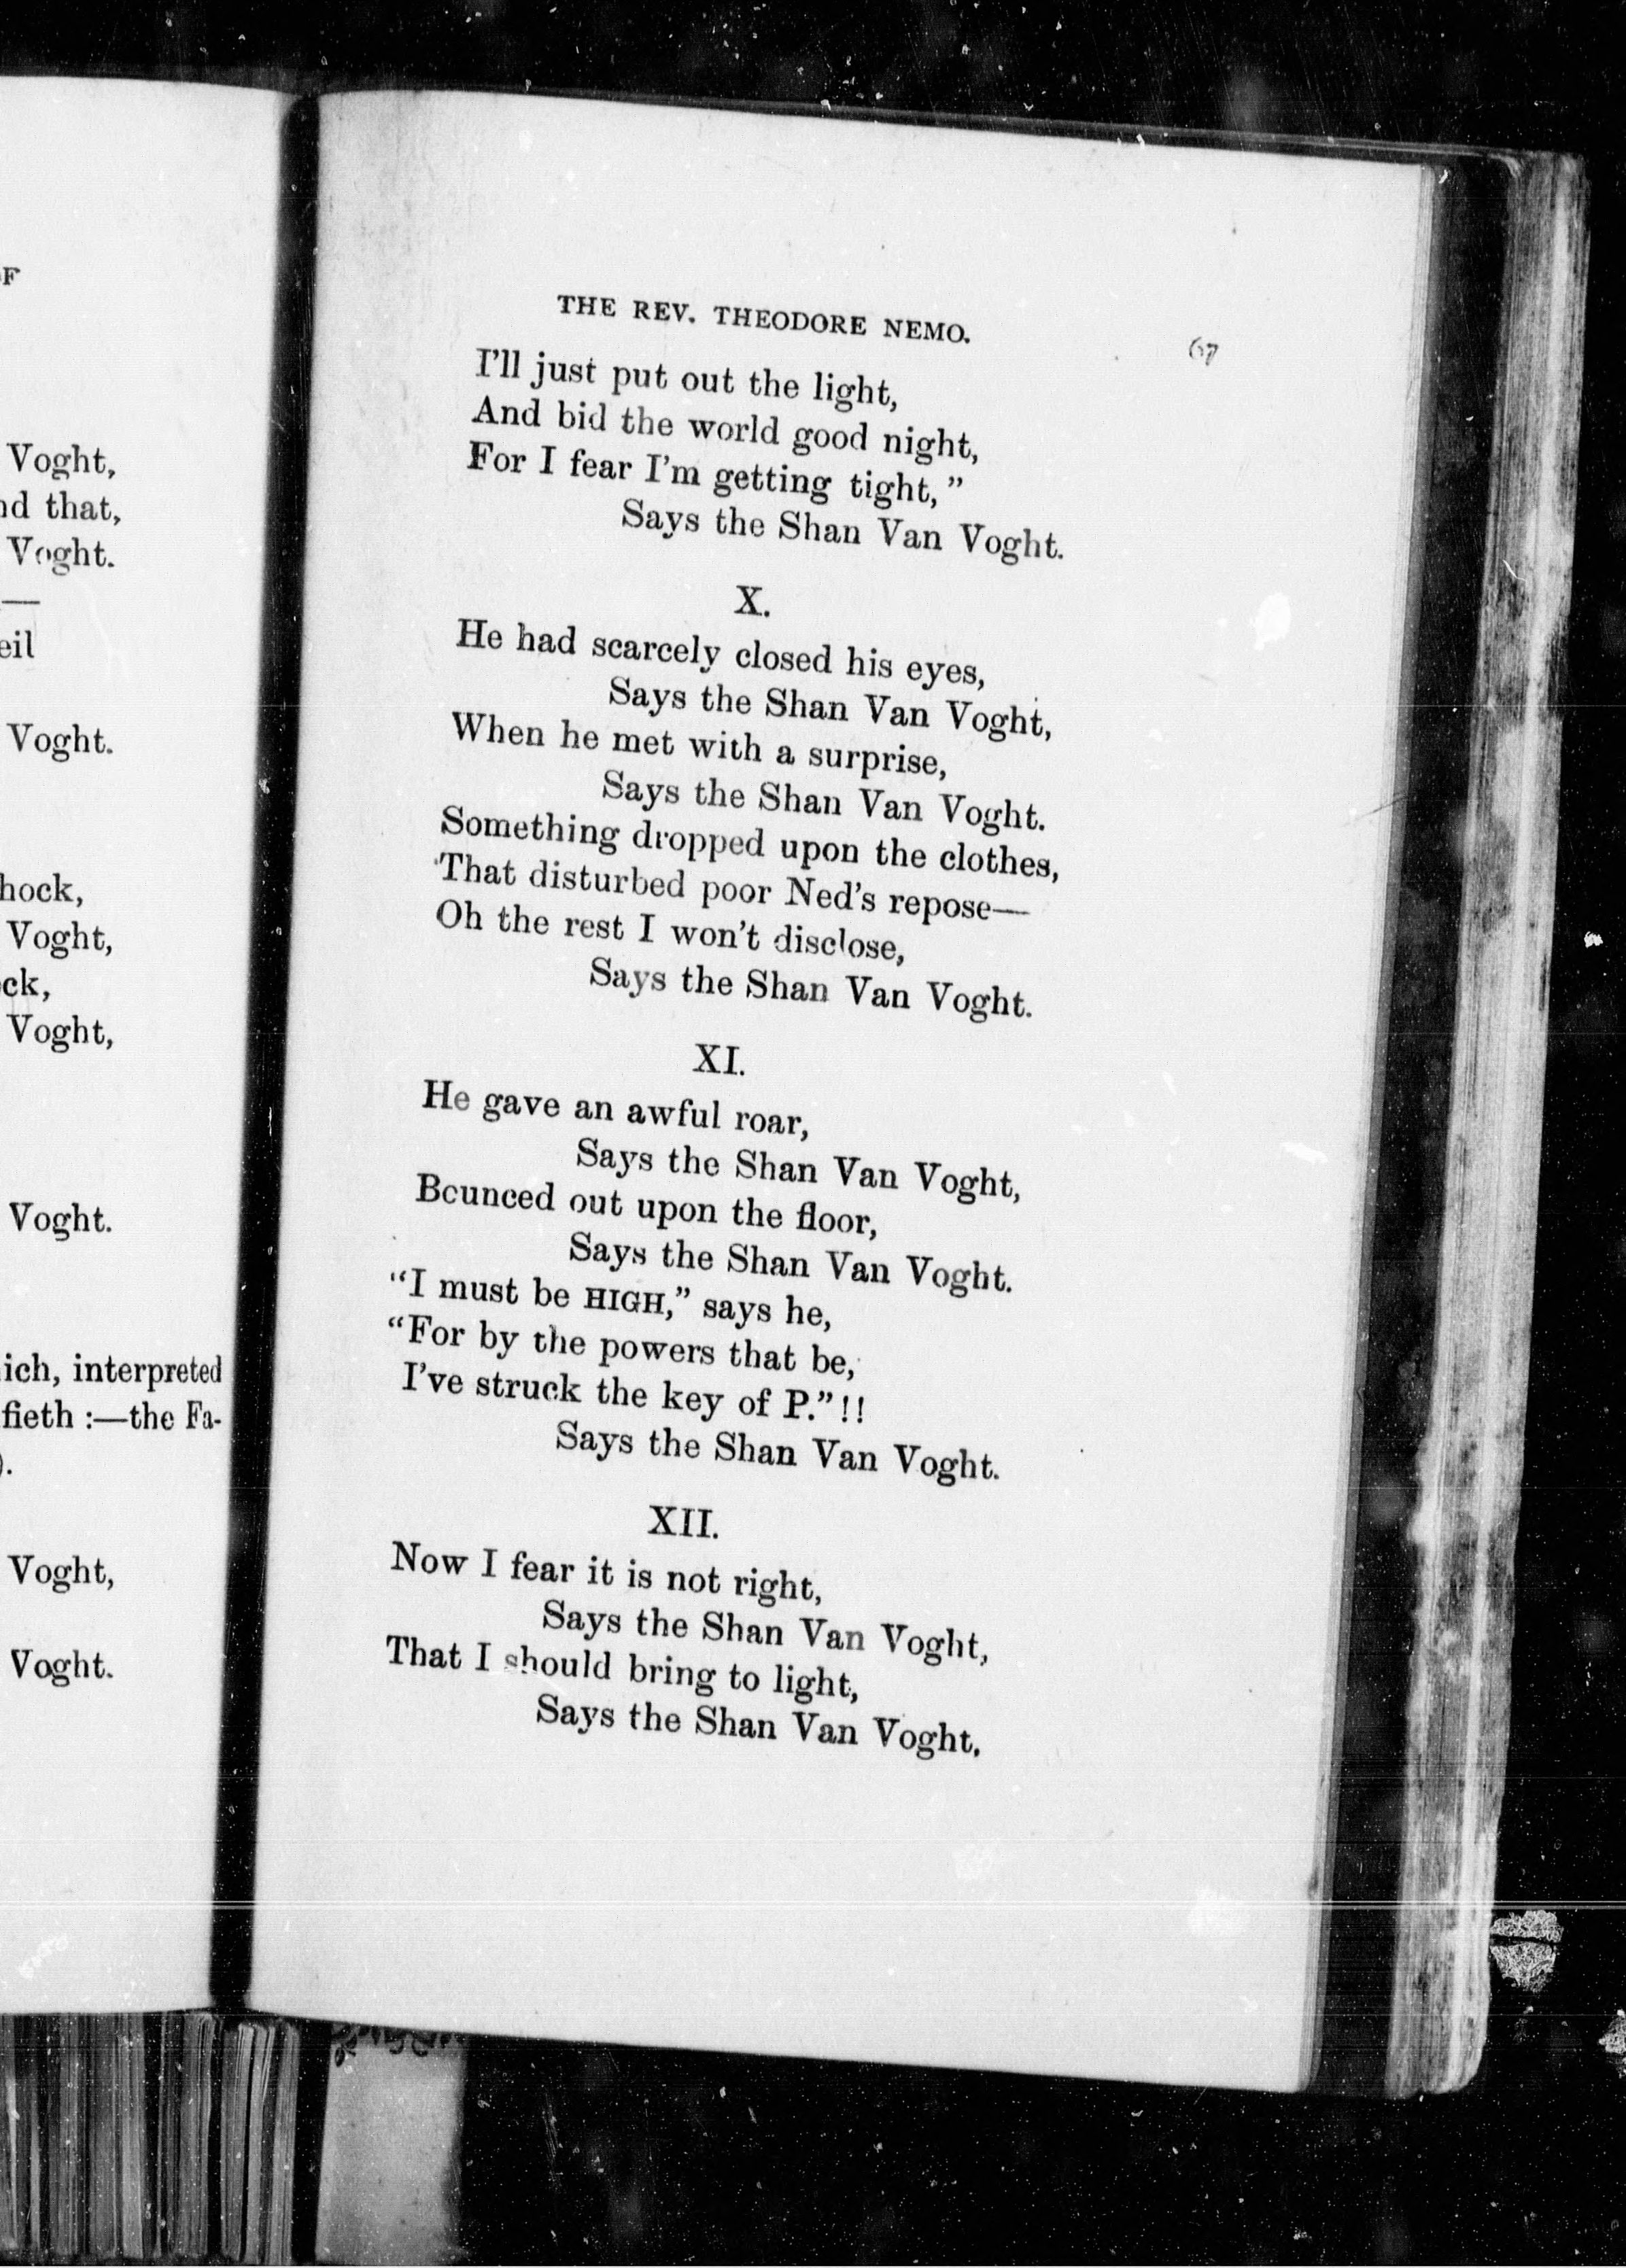 OF
Voght,
nd that,
Voght.
—
eil
Voght.
hock,
Voght,
ck,
Voght,
Voght.
ich, interpreted
fieth :—the Fa-
).
Voght,
Voght.
THE REV. THEODORE NEMO.
67
I'll just put out the light,
And bid the world good night,
For I fear I'm getting tight,"
Says the Shan Van Voght.
X.
He had scarcely closed his eyes,
Says the Shan Van Voght,
When he met with a surprise,
Says the Shan Van Voght.
Something dropped upon the clothes,
That disturbed poor Ned's repose—
Oh the rest I won't disclose,
Says the Shan Van Voght.
XI.
He gave an awful roar,
Says the Shan Van Voght,
Bounced out upon the floor,
Says the Shan Van Voght.
"I must be HIGH," says he,
"For by the powers that be,
I've struck the key of P."!!
Says the Shan Van Voght.
XII.
Now I fear it is not right,
Says the Shan Van Voght,
That I should bring to light,
Says the Shan Van Voght,